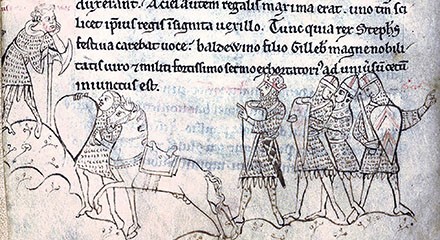 duxerant. Acies autem regalis maxima erat. uno tm̄ sci
licet ip̄ius regis īsignita vexillo. Tunc quia rex Stephs
festiua carebat uoce: baldewino filio Gilleb magne nobili
tatis uiro & militi fortissimo sermo exhortatori' ad uniūsū cetū
iniunctus est.